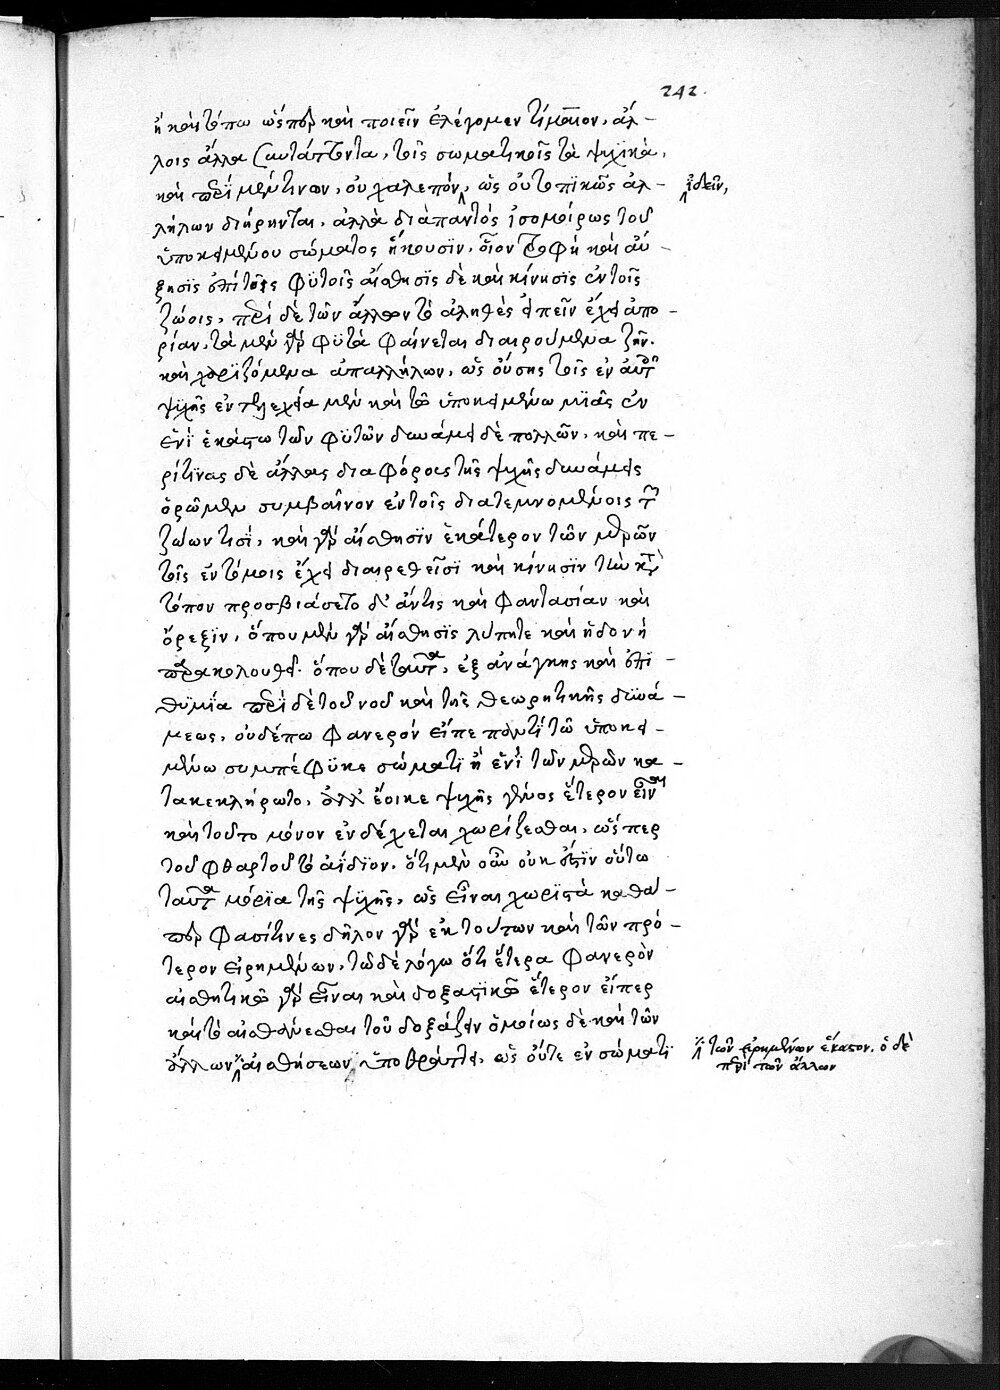 242.
ἢ καὶ τόπω ὥσπερ καὶ ποιεῖν ἐλέγομεν τίμαιον, ἄλ-
λοις ἄλλα συνάπτοντα, τοῖς σωματικοῖς τὰ ψυχικά,
καὶ περὶ μέν τινων, οὐ χαλεπόν, ὡς οὐ τοπικῶς ἀλ-
ἰδεῖν,
λήλων διήρηνται, ἀλλὰ διὰ παντὸς ἰσομοίρως τοῦ
ὑποκειμένου σώματος ἥκουσιν, οἷον τροφὴ καὶ αὔ-
ξησις ἐπὶ τοῖς φυτοῖς αἴσθησις δὲ καὶ κίνησις ἐν τοῖς
ζώοις, περὶ δὲ τῶν ἄλλων τὸ ἀληθὲς εἰπεῖν ἔχει ἀπο-
ρίαν, τὰ μὲν γὰρ φυτὰ φαίνεται διαιρούμενα ζῆν.
καὶ χωριζόμενα ἀπαλλήλων, ὡς οὔσης τῆς ἐν αὐτοῖς
ψυχῆς ἐντελεχεία μὲν καὶ τῶ ὑποκειμένω μιᾶς ἐν
ἑνὶ ἑκάστω τῶν φυτῶν δυνάμει δὲ πολλῶν, καὶ πε-
ρί τινας δὲ ἄλλας διαφόρους τῆς ψυχῆς δυνάμεις
ὁρῶμεν συμβαῖνον ἐν τοῖς διατεμνομένοις τῶν
ζώων τισί, καὶ γὰρ αἴσθησιν ἑκάτερον τῶν μερῶν
τοῖς ἐντόμοις ἔχει διαιρεθεῖσι καὶ κίνησιν τὴν κατὰ
τόπον προσβιάσετο δ' ἄν τις καὶ φαντασίαν καὶ
ὄρεξιν, ὅπου μὲν γὰρ αἴσθησις λύπητε καὶ ἡδονὴ
παρακολουθεῖ. ὅπου δὲ ταῦτα, ἐξ ἀνάγκης καὶ ἐπι-
θυμία περὶ δὲ τοῦ νοῦ καὶ τῆς θεωρητικῆς δυνά-
μεως, οὐδέπω φανερόν εἴπε παντὶ τῶ ὑποκει-
μένω συμπέφυκε σώματι ἢ ἑνὶ τῶν μερῶν κα-
τακεκλήρωτο, ἀλλ' ἔοικε ψυχῆς γένος ἕτερον εἶναι
καὶ τοῦτο μόνον ἐνδέχεται χωρίζεσθαι, ὥσπερ
τοῦ φθαρτοῦ τὸ ἀΐδιον. ὅτι μὲν οὖν οὐκ ἔστιν οὕτω
ταῦτα μόρια τῆς ψυχῆς, ὡς εἶναι χωριστὰ καθά-
περ φασί τινες δῆλον γὰρ ἐκ τούτων καὶ τῶν πρό-
τερον εἰρημένων, τῶ δὲ λόγω ὅτι ἕτερα φανερὸν
αἰσθητικῶ γὰρ εἶναι καὶ δοξαστικῶ ἕτερον εἴπερ
καὶ τὸ αἰσθάνεσθαι τοῦ δοξάζειν ὁμοίως δὲ καὶ τῶν
ἄλλων αἰσθήσεων ὑπογράπτει, ὡς οὔτε ἐν σώματι
τῶν εἰρημένων ἕκαστον. ὁ δὲ
περὶ τῶν ἄλλων